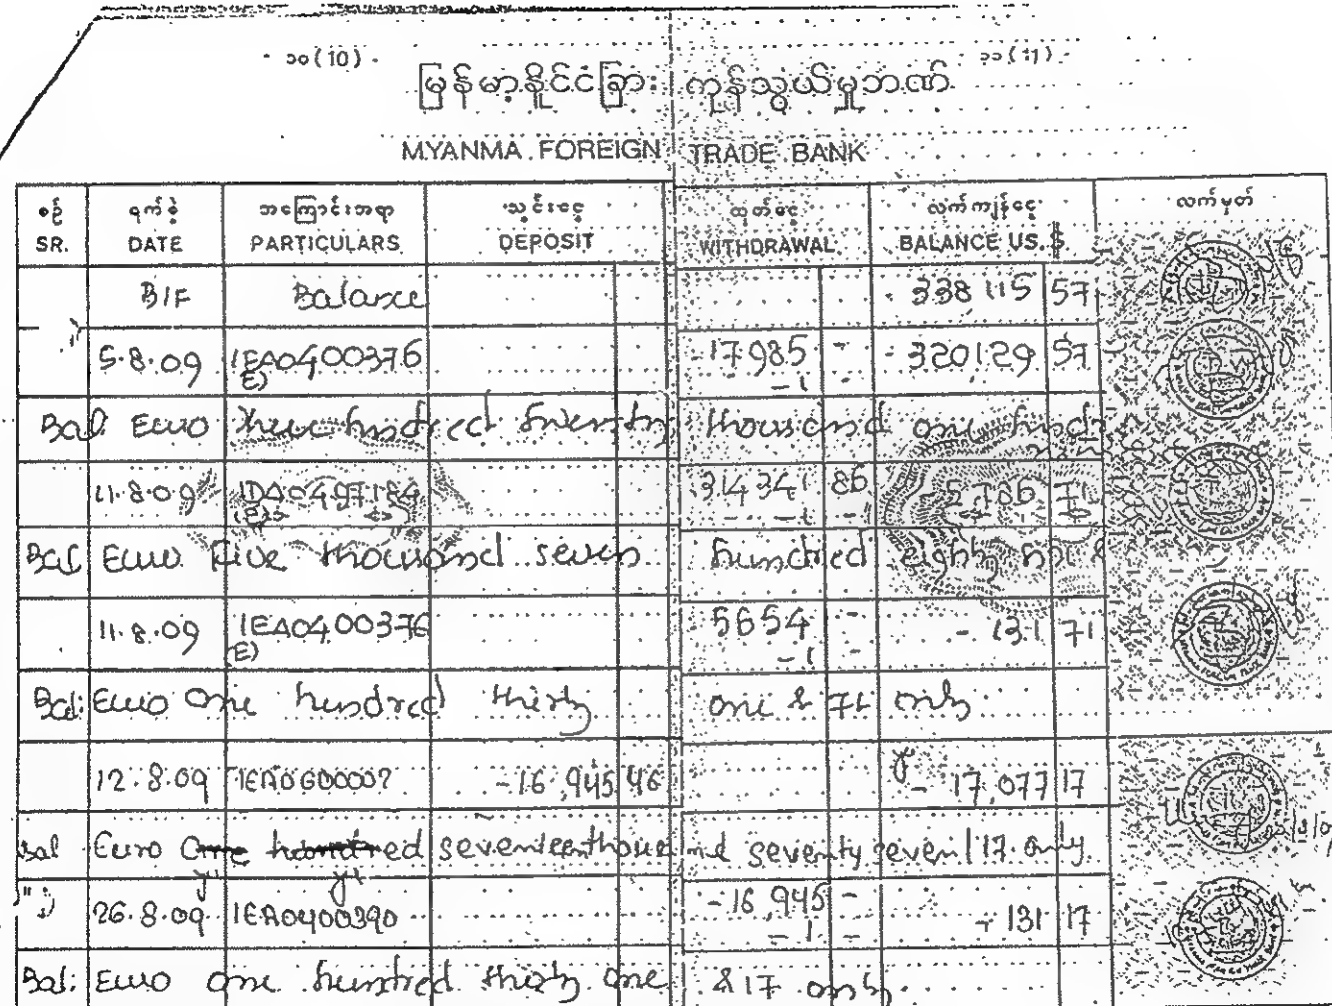 ၁၀(10)
၁၁(11)
မြန်မာ့နိုင်ငံခြား ကုန်သွယ်မှုဘဏ်
MYANMA FOREIGN TRADE BANK
စဉ် ရက်စွဲ အကြောင်းအရာ သွင်းငွေ ထုတ်ငွေ လက်ကျန်ငွေ လက်မှတ်
SR. DATE PARTICULARS DEPOSIT WITHDRAWAL BALANCE US. $.
B/F Balance 338115 57
5.8.09 IEA0400376 17985 - 320129 57
(E) -1 -
Bal: Euro three hundred twenty thousand one
11.8.09 IDA0497184 314341 86 5786 71
(E) -1 -
Bal: Euro five thousand seven hundred eighty
11.8.09 IEA0400376 5654 - - 131 71
(E) -1 -
Bal: Euro One hundred thirty one & 71 only
12.8.09 IEA0600007 -16,945 46 - 17,077 17
Bal Euro One hundred seventeen thousand seventy seven/17 only
26.8.09 IEA0400390 -16,945 - - 131 17
-1 -
Bal: Euro one hundred thirty one & 17 only